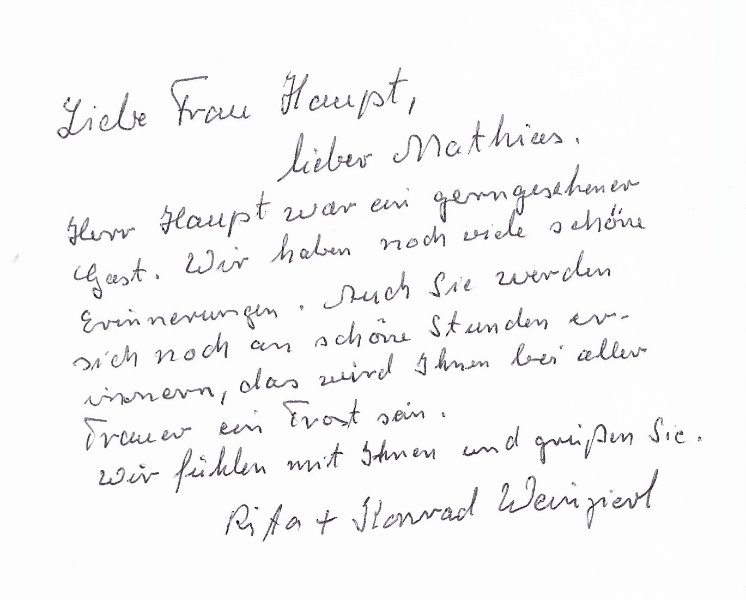 Liebe Frau Haupt,
lieber Mathias.
Herr Haupt war ein gerngesehener
Gast. Wir haben noch viele schöne
Erinnerungen. Auch Sie werden
sich noch an schöne Stunden er-
innern, das wird Ihnen bei aller
Trauer ein Trost sein.
Wir fühlen mit Ihnen und grüßen Sie.
Rita + Konrad Weinzierl